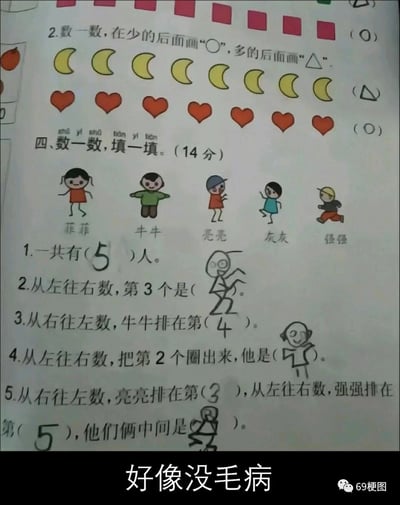 (○)
2.数一数,在少的后面画“○”,多的后面画“△”.
(△)
(○)
shǔ yī shǔ tián yī tián
四、数一数,填一填。(14分)
菲菲 牛牛 亮亮 灰灰 强强
1.一共有(5)人。
2.从左往右数,第3个是( )。
3.从右往左数,牛牛排在第(4)。
4.从左往右数,把第2个圈出来,他是( )。
5.从右往左数,亮亮排在第(3),从左往右数,强强排在
第(5),他们俩中间是( )。
好像没毛病
69梗图